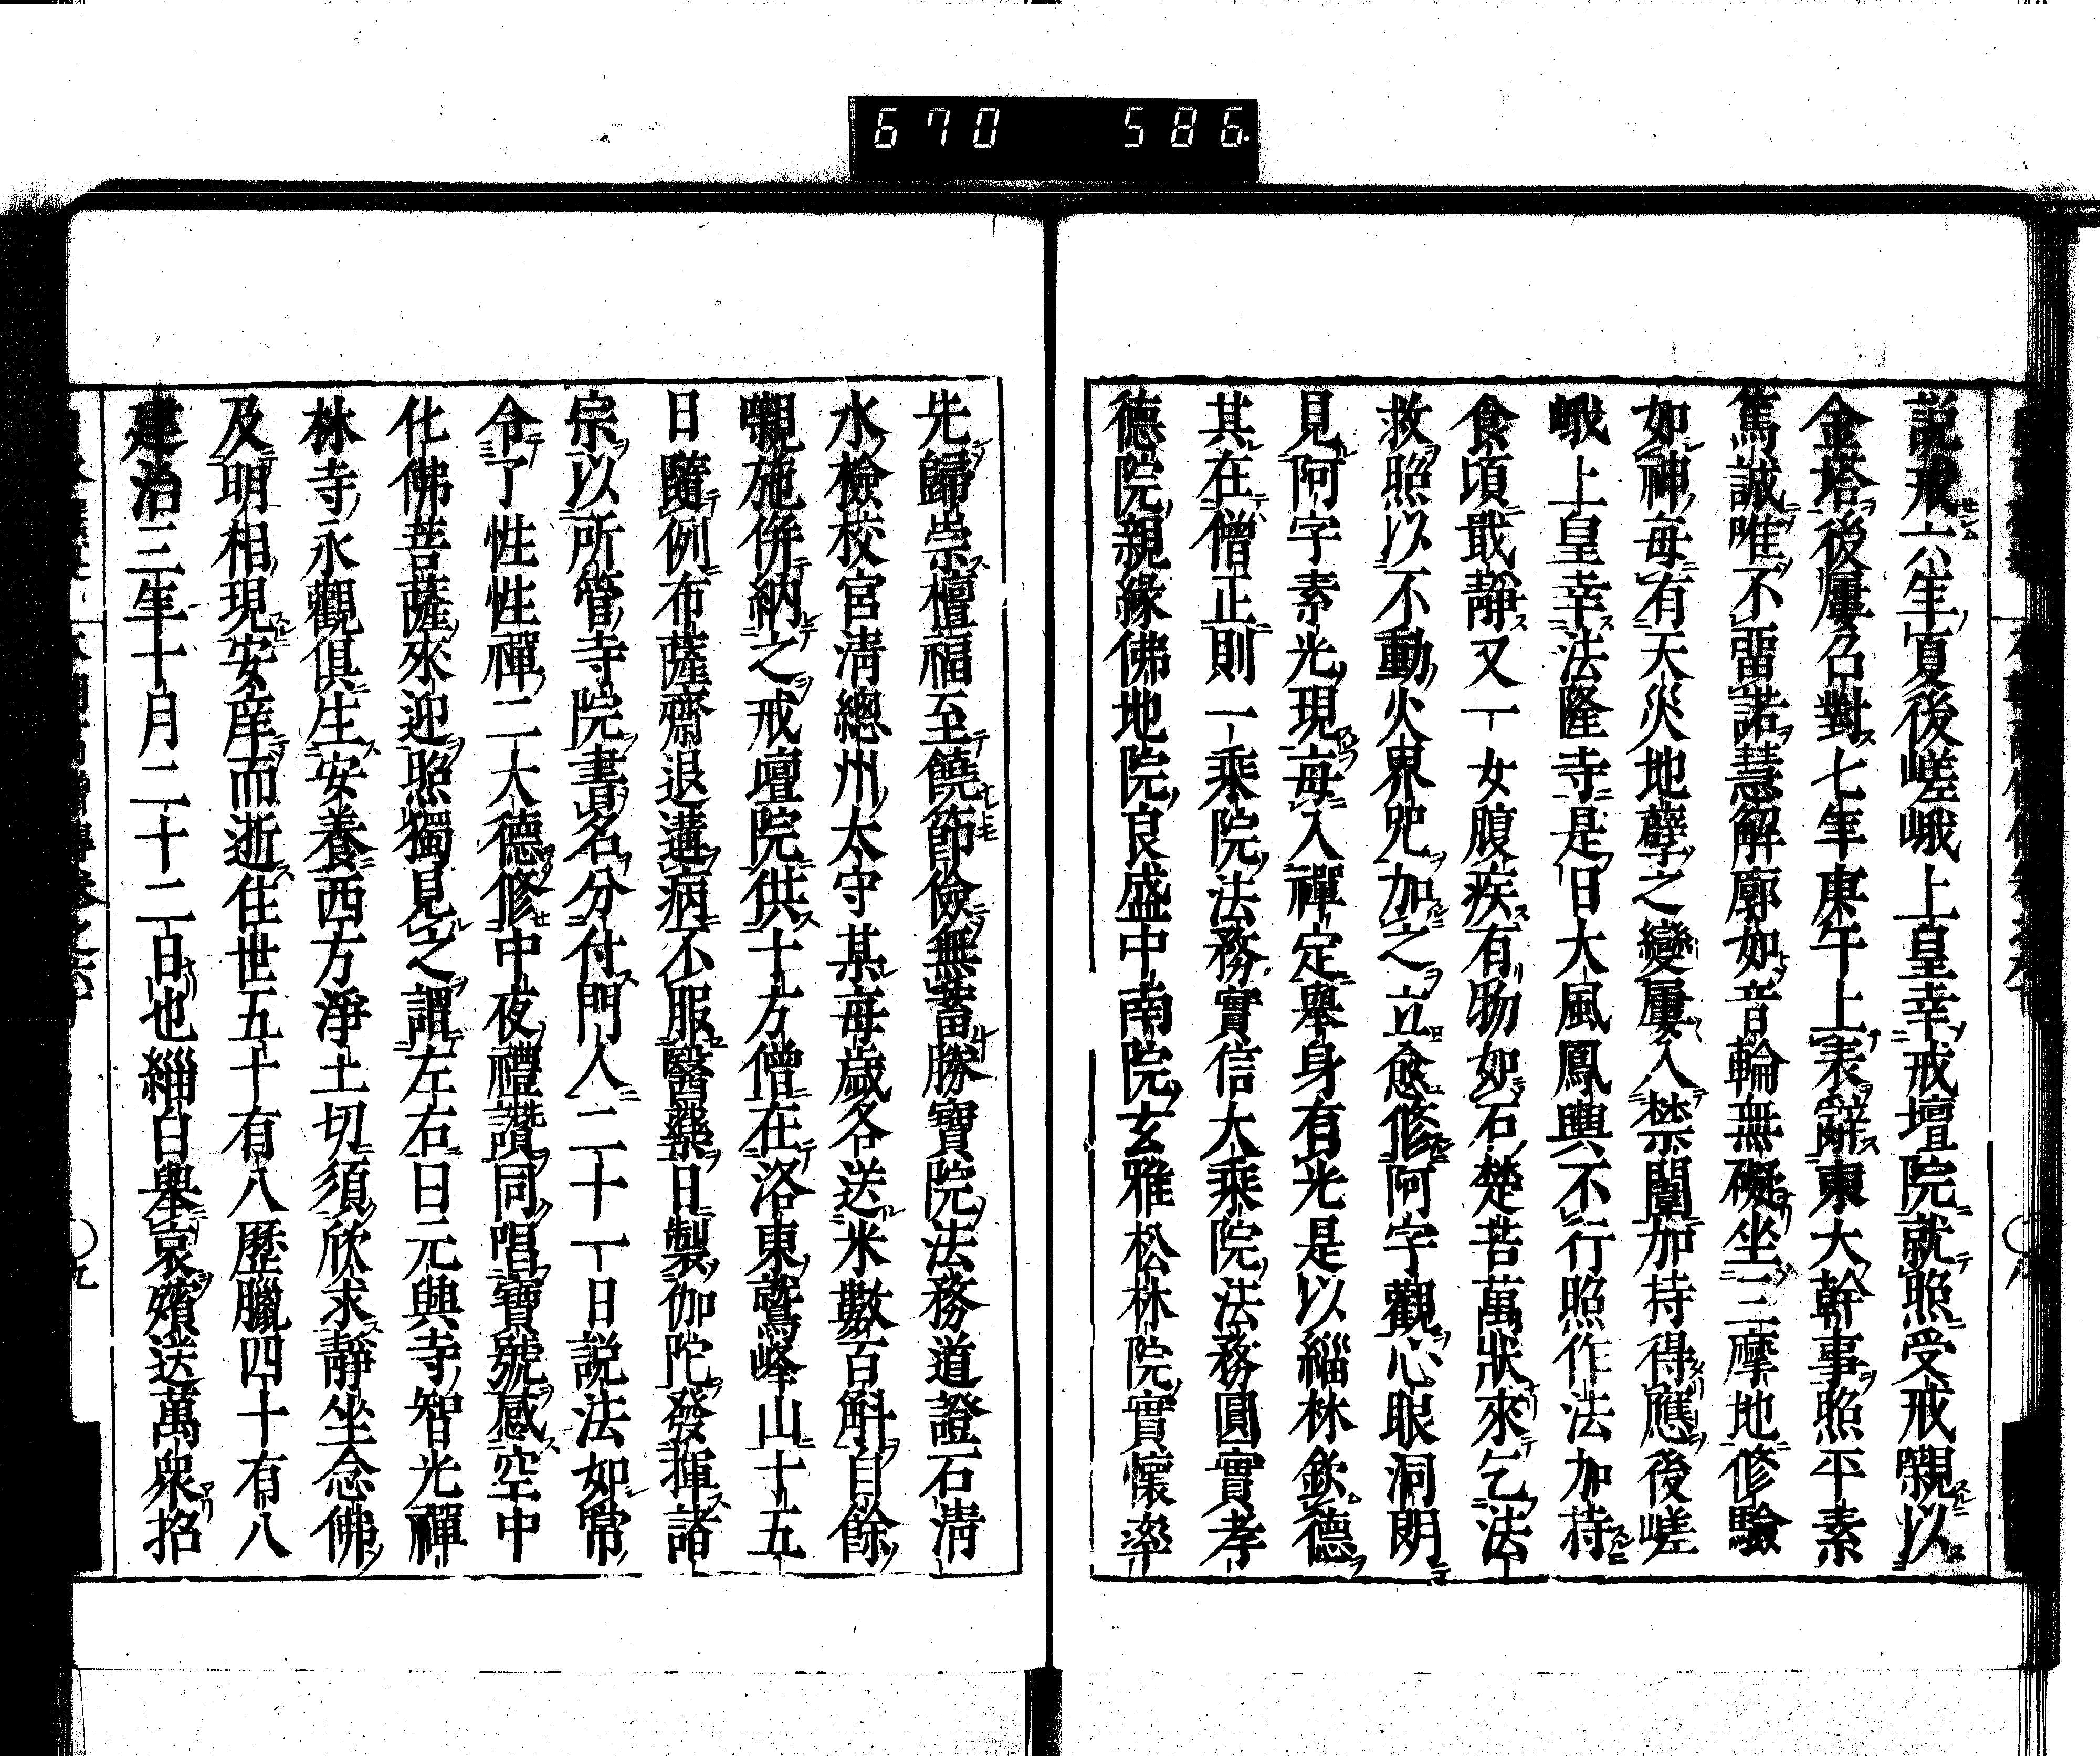 670 586
説戒六年夏後嵯峨上皇幸戒壇院就照受戒䞋以
金塔後屢召對七年庚午上表辭東大幹事照平素
篤誠唯不畱諾慧解廓如音輪無礙坐三摩地修驗
如神毎有天災地孽之變屢入禁闈加持得應後嵯
峨上皇幸法隆寺是日大風鳳輿不行照作法加持
食頃戢靜又一女腹疾有物如石楚苦萬狀來乞法
救照以不動火界咒加之立愈修阿字觀心眼洞明
見阿字素光現毎入禪定舉身有光是以緇林欽德
其在僧正則一乘院法務實信大乘院法務圓實孝
德院親緣佛地院良盛中南院玄雅松林院實懷率
先歸崇檀福至饒節儉無蓄勝寶院法務道證石清
水檢校宮清總州太守某毎歲各送米數百斛自餘
䞋施併納之戒壇院供十方僧在洛東鷲峰山十五
日隨例布薩齋退遘病不服醫藥日製伽陀發揮諸
宗以所管寺院書名分付門人二十一日説法如常
令了性性禪二大德修中夜禮讚同唱寶號感空中
化佛菩薩來迎照獨見之謂左右曰元興寺智光禪
林寺永觀俱生安養西方淨土切須欣求靜坐念佛
及明相現安庠而逝住世五十有八歷臘四十有八
建治三年十月二十二日也緇白舉哀殯送萬衆招